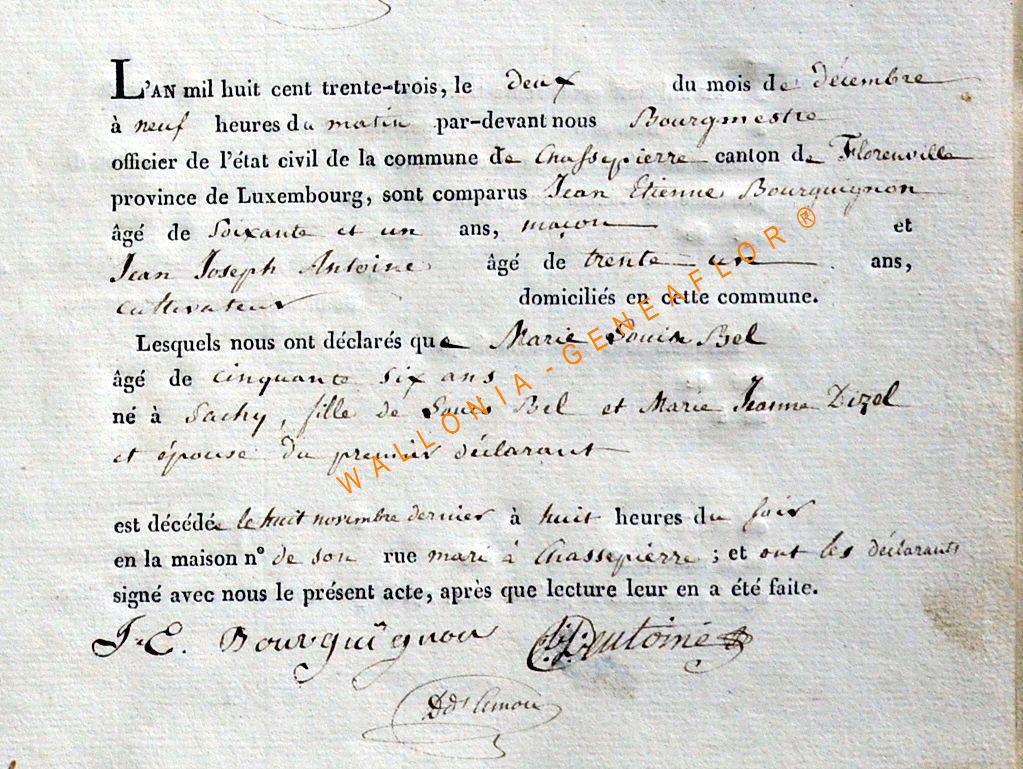 L'AN mil huit cent trente-trois, le deux du mois de décembre
à neuf heures du matin par-devant nous Bourgmestre
officier de l'état civil de la commune de Chassepierre canton de Florenville
province de Luxembourg, sont comparus Jean Etienne Bourguignon
âgé de Soixante et un ans, maçon et
Jean Joseph Antoine âgé de trente un ans,
cultivateur domiciliés en cette commune.
Lesquels nous ont déclarés que Marie Louise Bel
âgé de cinquante six ans
né à Sachy, fille de Louis Bel et Marie Jeanne Dizel
et épouse du premier déclarant
est décédée le huit novembre dernier à huit heures du soir
en la maison n° de son rue mari à Chassepierre ; et ont les déclarants
signé avec nous le présent acte, après que lecture leur en a été faite.
J. E. Bourguignon Antoine
WALLONIA - GENEAFLOR ®